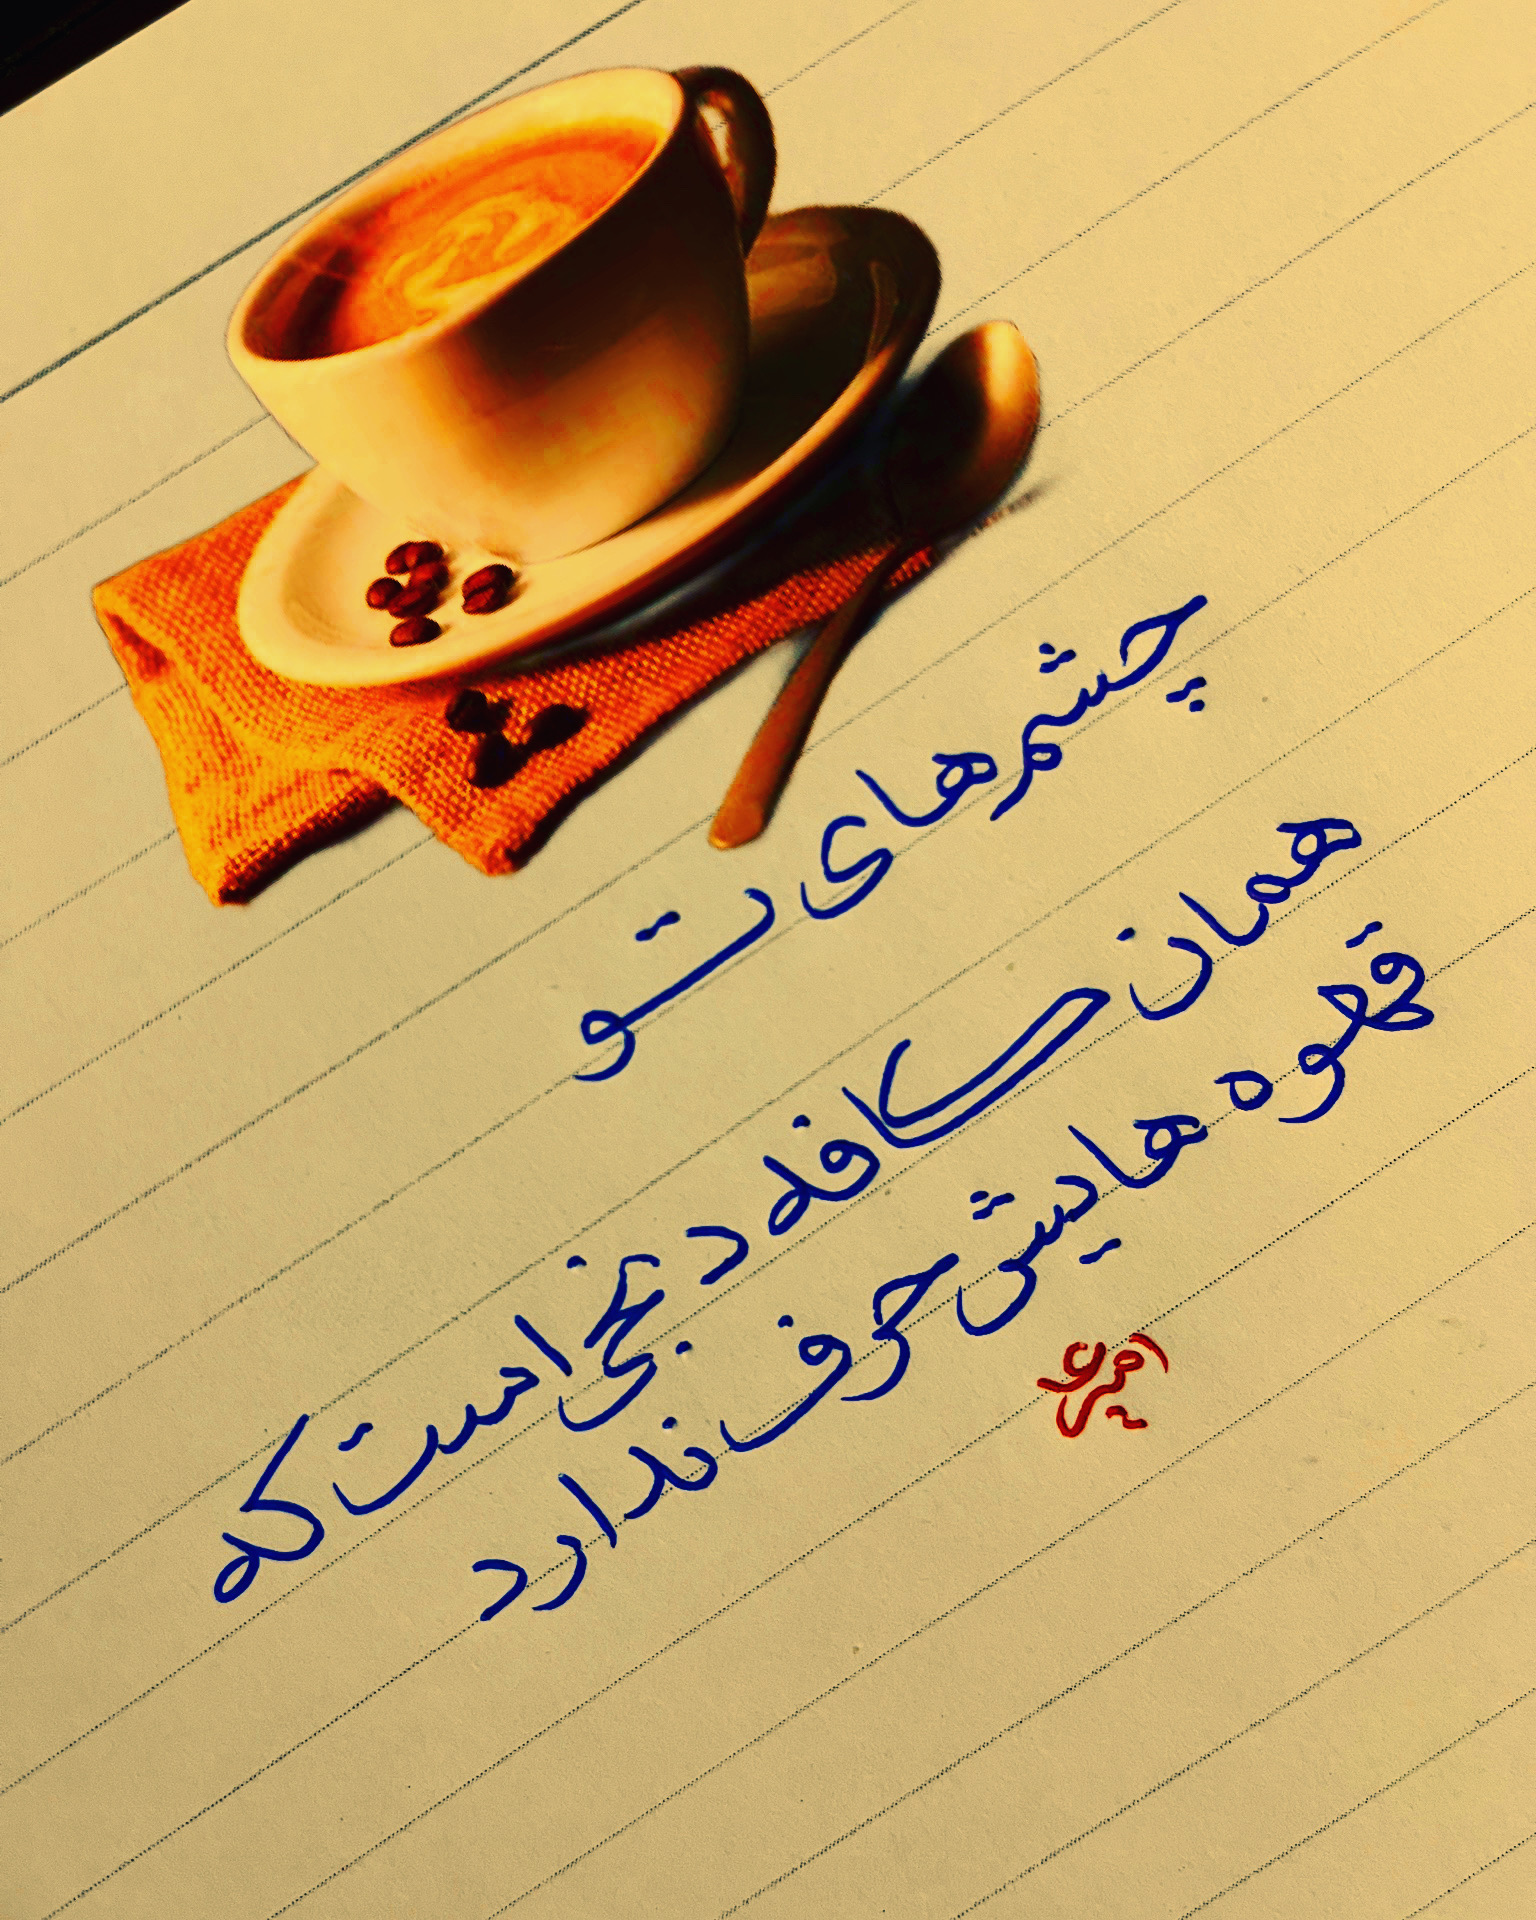 چشم‌های تو
همان کافه دنجی است که
قهوه هایش حرف ندارد